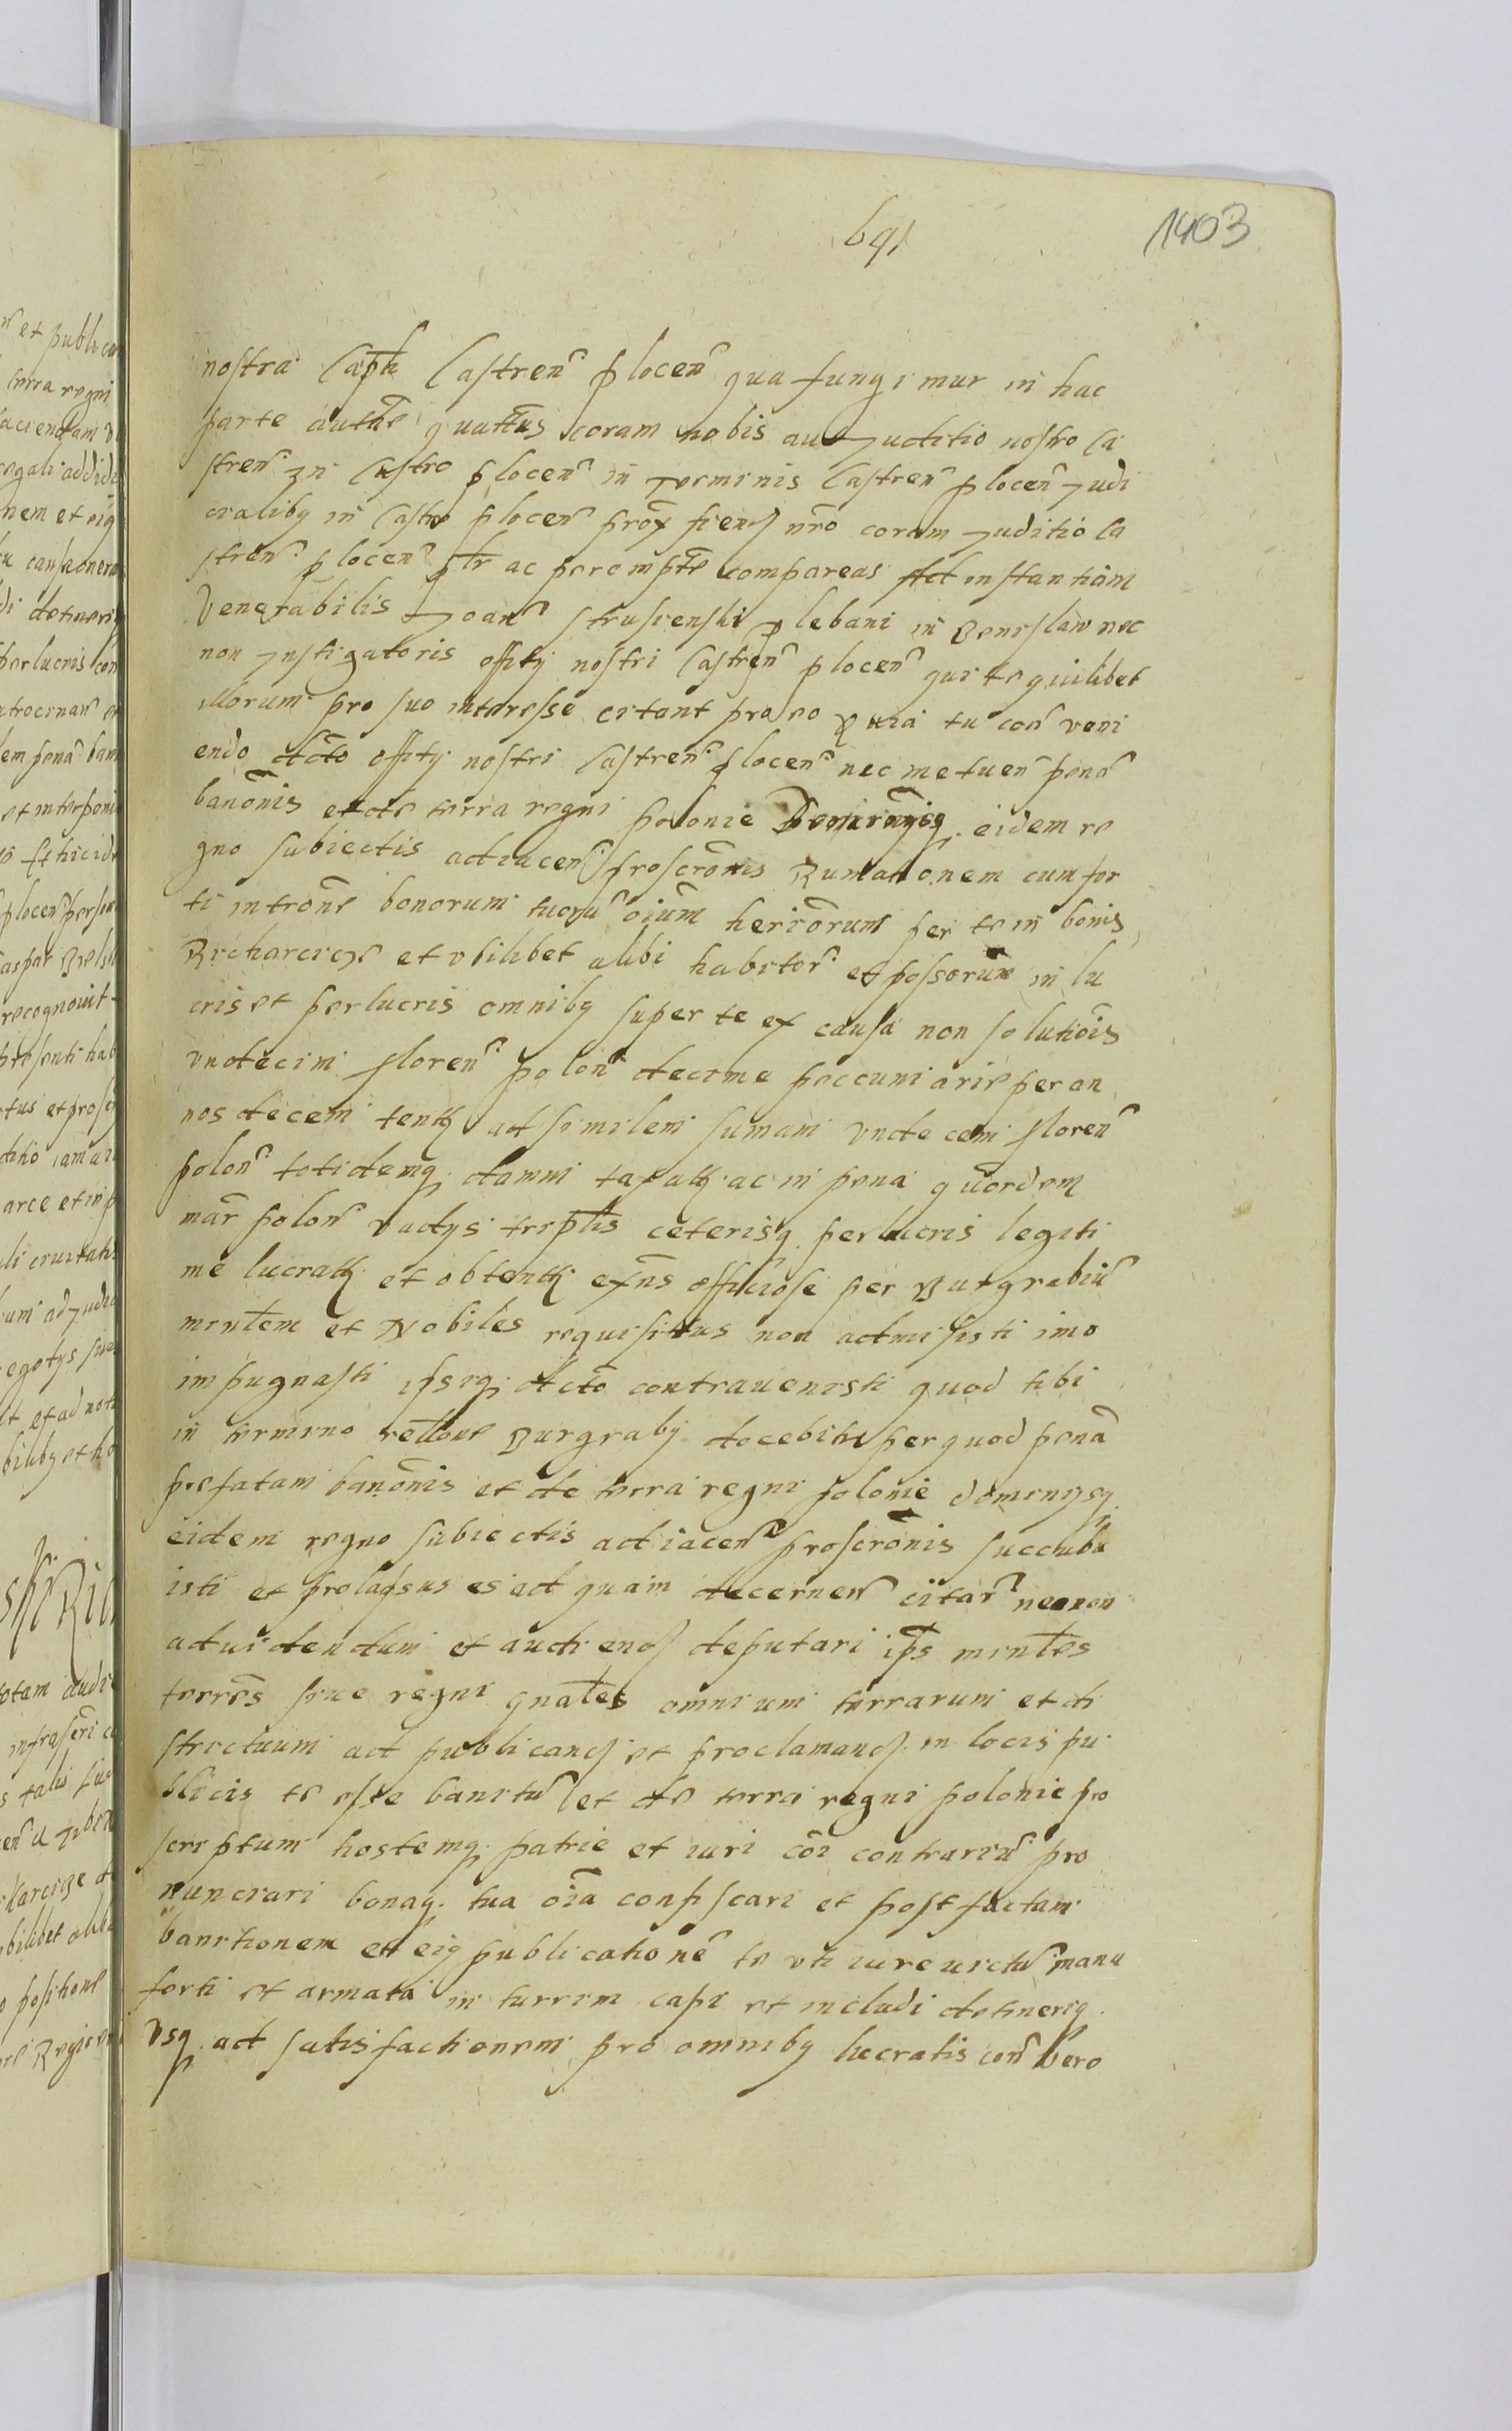 691
1403
nostra Captli Castren Plocen qua fungimur in hac
parte authe quattus coram nobis aut Juditio nostro Ca
stren In Castro Plocen in Terminis Castren Plocen Judi
cialibq in Castro Plocen prox fiend nro coram Juditio Ca
stren Plocen ptr ac perempte compareas Ad instantiam
Venerabilis Joan plebani in nec
non Instigatoris offity nostri Castren Plocen qui te quilibet
illorum pro suo interesse citant pro eo Quia tu con veni
endo dcto offity nostri Castren Plocen nec metuen pena
banonis et de terra regni Polonie Dominysq eidem re
gno subiectis adiacen proscronis Rumationem cum for
ti introne bonorum tuoru oium heriorum per te in bonis
et vbilibet alibi habitor et possorum in lu
cris et perlucris omnibq super te ex causa non solutiois
vndecim floren polon decime peccuniarie per an
nos decem tent ad similem sumam vndecem floren
polon totidemq damni taxat ac in pena quordem
mar polon vadys triplis ceterisq perlucris legiti
me lucrat et obtent exns officiose per Burgrabiu
mintem et Nobiles requisitus non admisisti imo
impugnasti ipsiq dcto contrauenisti quod tibi
in termino relone Burgraby docebitr per quod pena
prefatam banonis et de terra regni polonie dominysq
eidem regno subiectis adiacen proscronis succubu
isti et prolapsus es ad quam decernen citar necnon
ad videndum et audiend deputari ips mintes
terres siue regni gnales omnium terrarum et di
strictuum ad publicand et proclamand in locis pu
blicis te esse banitu et de terra regni polonie pro
scriptum hostemq patrie et iuri coi contrariu pro
nunciari bonaq tua oia confiscari et post factam
banitionem et eiq publicatione te vti iure victu manu
forti et armata in turrim capi et includi detineriq
Vsq ad satisfactionem pro omnibq lucratis con vero